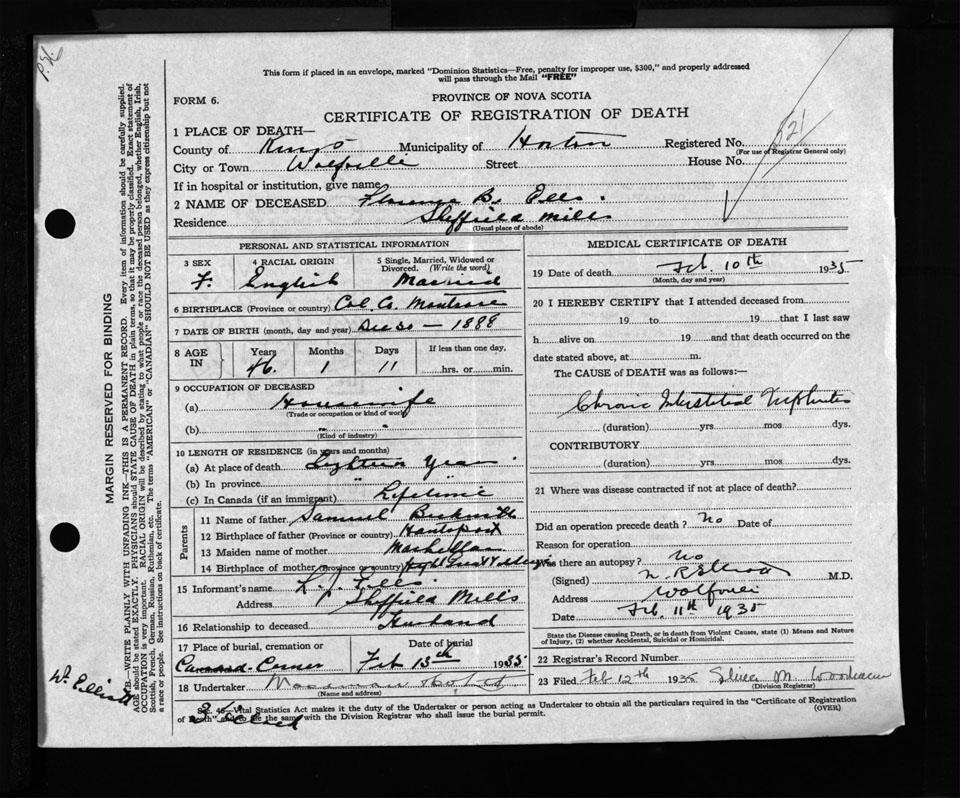 This form if placed in an envelope, marked "Dominion Statistics—Free, penalty for improper use, $300," and properly addressed
will pass through the Mail "FREE"
FORM 6.
PROVINCE OF NOVA SCOTIA
CERTIFICATE OF REGISTRATION OF DEATH
1 PLACE OF DEATH—
County of Kings Municipality of Horton Registered No. 521
(For use of Registrar General only)
City or Town Wolfville Street House No.
If in hospital or institution, give name
2 NAME OF DECEASED Florence B. Ells
Residence Sheffield Mills
(Usual place of abode)
PERSONAL AND STATISTICAL INFORMATION
3 SEX F.
4 RACIAL ORIGIN English
5 Single, Married, Widowed or Divorced. (Write the word) Married
6 BIRTHPLACE (Province or country) Col. Co. Montrose
7 DATE OF BIRTH (month, day and year) Dec 30 – 1888
8 AGE IN Years 46 Months 1 Days 11 If less than one day, hrs. or min.
9 OCCUPATION OF DECEASED
(a) Housewife
(Trade or occupation or kind of work)
(b)
(Kind of industry)
10 LENGTH OF RESIDENCE (in years and months)
(a) At place of death Eighteen Years
(b) In province " "
(c) In Canada (if an immigrant) Lifetime
Parents
11 Name of father Samuel
12 Birthplace of father (Province or country) Hantsport
13 Maiden name of mother
14 Birthplace of mother (Province or country)
15 Informant's name L. J. Ells
Address Sheffield Mills
16 Relationship to deceased Husband
17 Place of burial, cremation or Canard Corner
Date of burial Feb 13th 1935
18 Undertaker
(Name and address)
MEDICAL CERTIFICATE OF DEATH
19 Date of death Feb. 10th 1935
(Month, day and year)
20 I HEREBY CERTIFY that I attended deceased from
19 to 19 that I last saw
h alive on 19 and that death occurred on the
date stated above, at m.
The CAUSE of DEATH was as follows:—
Chronic Interstitial Nephritis
(duration) yrs mos dys.
CONTRIBUTORY
(duration) yrs mos dys.
21 Where was disease contracted if not at place of death?
Did an operation precede death? No Date of
Reason for operation
Was there an autopsy? No
(Signed) M.D.
Address Wolfville
Date Feb. 11th 1935
State the Disease causing Death, or in death from Violent Causes, state (1) Means and Nature
of Injury, (2) whether Accidental, Suicidal or Homicidal.
22 Registrar's Record Number
23 Filed Feb 12th 1935
(Division Registrar)
Vital Statistics Act makes it the duty of the Undertaker or person acting as Undertaker to obtain all the particulars required in the "Certificate of Registration
of Death" and to file the same with the Division Registrar who shall issue the burial permit.
(OVER)
MARGIN RESERVED FOR BINDING
N.B.—WRITE PLAINLY WITH UNFADING INK—THIS IS A PERMANENT RECORD. Every item of information should be carefully supplied.
AGE should be stated EXACTLY. PHYSICIANS should STATE CAUSE OF DEATH in plain terms, so that it may be properly classified. Exact statement of
OCCUPATION is very important. RACIAL ORIGIN will be described by stating to what people or race the deceased person belonged, whether English, Irish,
Scottish, French, German, Russian, Ruthenian, etc. The terms "AMERICAN" or "CANADIAN" SHOULD NOT BE USED as they express citizenship but not
a race or people. See instructions on back of certificate.